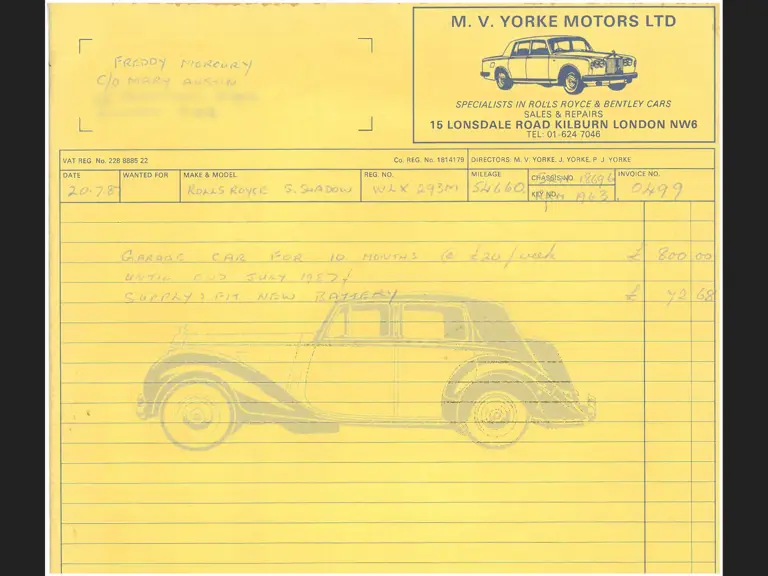 M. V. YORKE MOTORS LTD
SPECIALISTS IN ROLLS ROYCE & BENTLEY CARS
SALES & REPAIRS
15 LONSDALE ROAD KILBURN LONDON NW6
TEL: 01-624 7046
FREDDY MERCURY
C/O MARY AUSTIN
VAT REG. No. 228 8885 22
Co. REG. No. 1814179
DIRECTORS: M. V. YORKE, J. YORKE, P. J. YORKE
DATE
WANTED FOR
MAKE & MODEL
REG. NO.
MILEAGE
CHASSIS NO.
KEY NO.
INVOICE NO.
20-7-87
ROLLS ROYCE S. SHADOW
WLX 293M
54660
0499
GARAGE CAR FOR 10 MONTHS @ £20/week £ 800.00
UNTIL END JULY 1987
SUPPLY & FIT NEW BATTERY £ 72 68